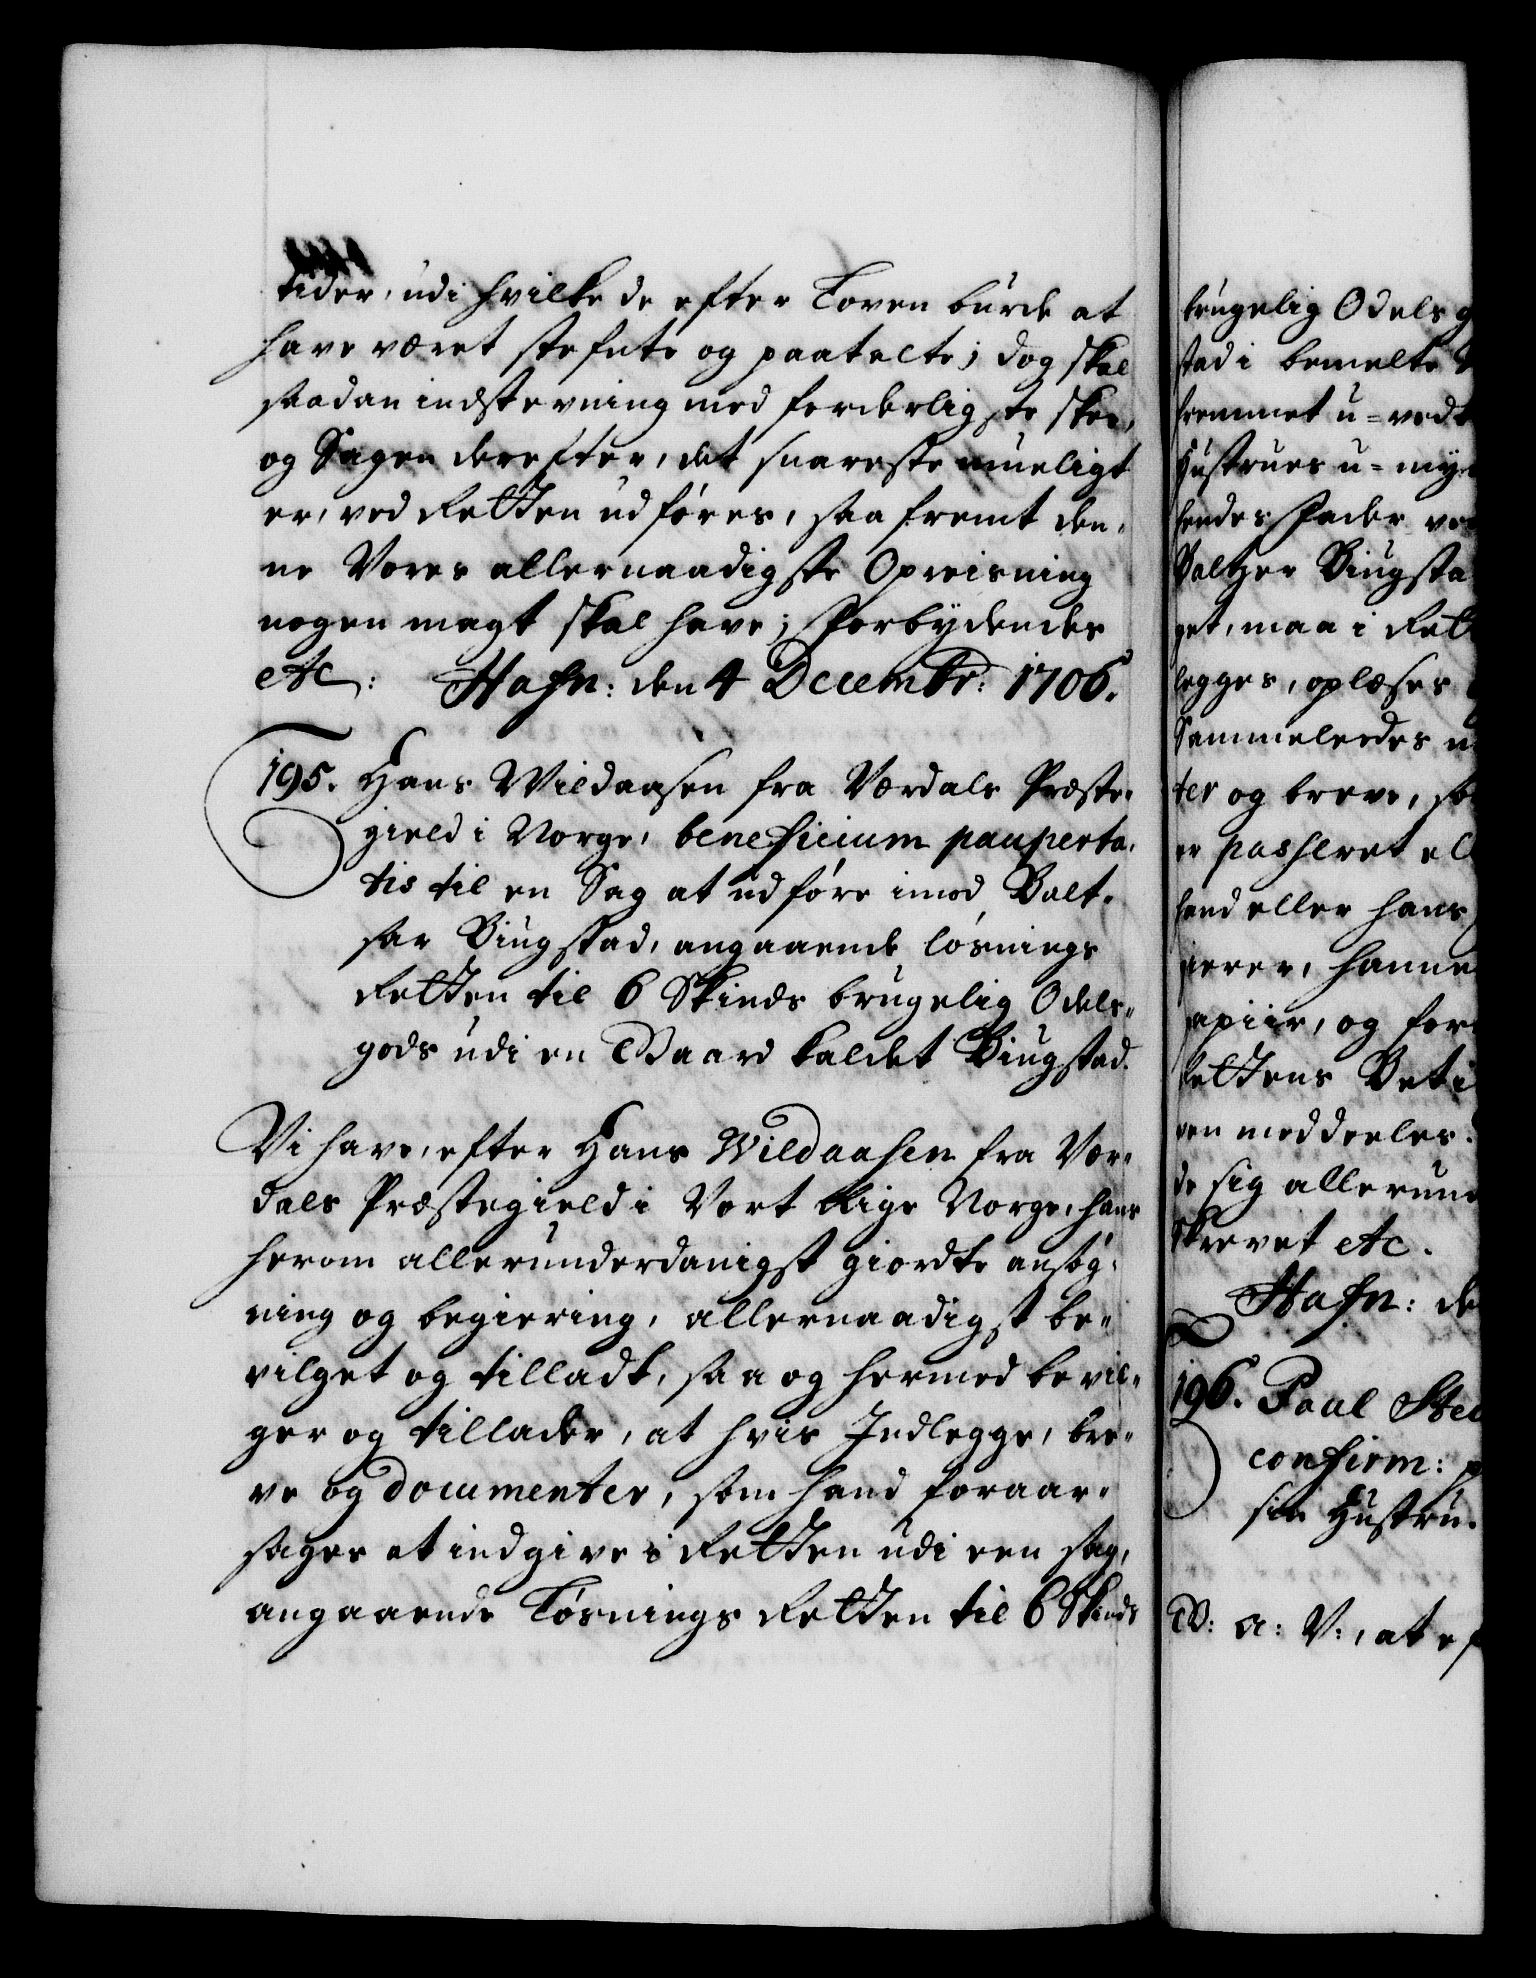 tider, udi hvilke de efter Loven burde at
have været stefnte og paatalte; dog skal
saadan indstevning med forderligste skee,
og Sagen derefter, det snareste mueligt
er, ved Retten udføres, saafremt den,
ne Vores allernaadigste Opreisning
nogen magt skal have; Forbydendes
etc: Hafn: den 4 Decembr: 1706.
195. Hans Wildaasen fra Værdals Præste,
gield i Norge, beneficium pauperta,
tis til en Sag at udføre imod Balt,
sar Biugstad, angaaende løsnings
Retten til 6 Skinds brugelig Odels,
gods udi en Gaard kaldet Biugstad.
Vi have, efter Hans Wildaasen fra Vær,
dals Præstegield i Vort Rige Norge, hans
herom allerunderdanigst giordte ansøg,
ning og begiering, allernaadigst be,
vilget og tilladt, saa og hermed bevil,
ger og tillader, at hvis Indlegge, bre,
ve og documenter, som hand foraar,
sages at indgive i Retten udi een sag,
angaaende Løsnings Retten til 6 Skinds
brugelig Odels g
stad i bemelte
fremmet u=vedt
Hustrues u=myn
hendes Fader
Baltzer Biugsta
get, maa i Rett
legges, oplæses
Sammeleedes
ter og breve, so
er passeret ell
hand eller hans
hanne
apiir, og for
Rettens Beti
en meddeeles.
de sig allerund
Skrevet etc.
Hafn: de
196. Poul Ste
confirm:
sin Hustru.
G: A: V:, at ef